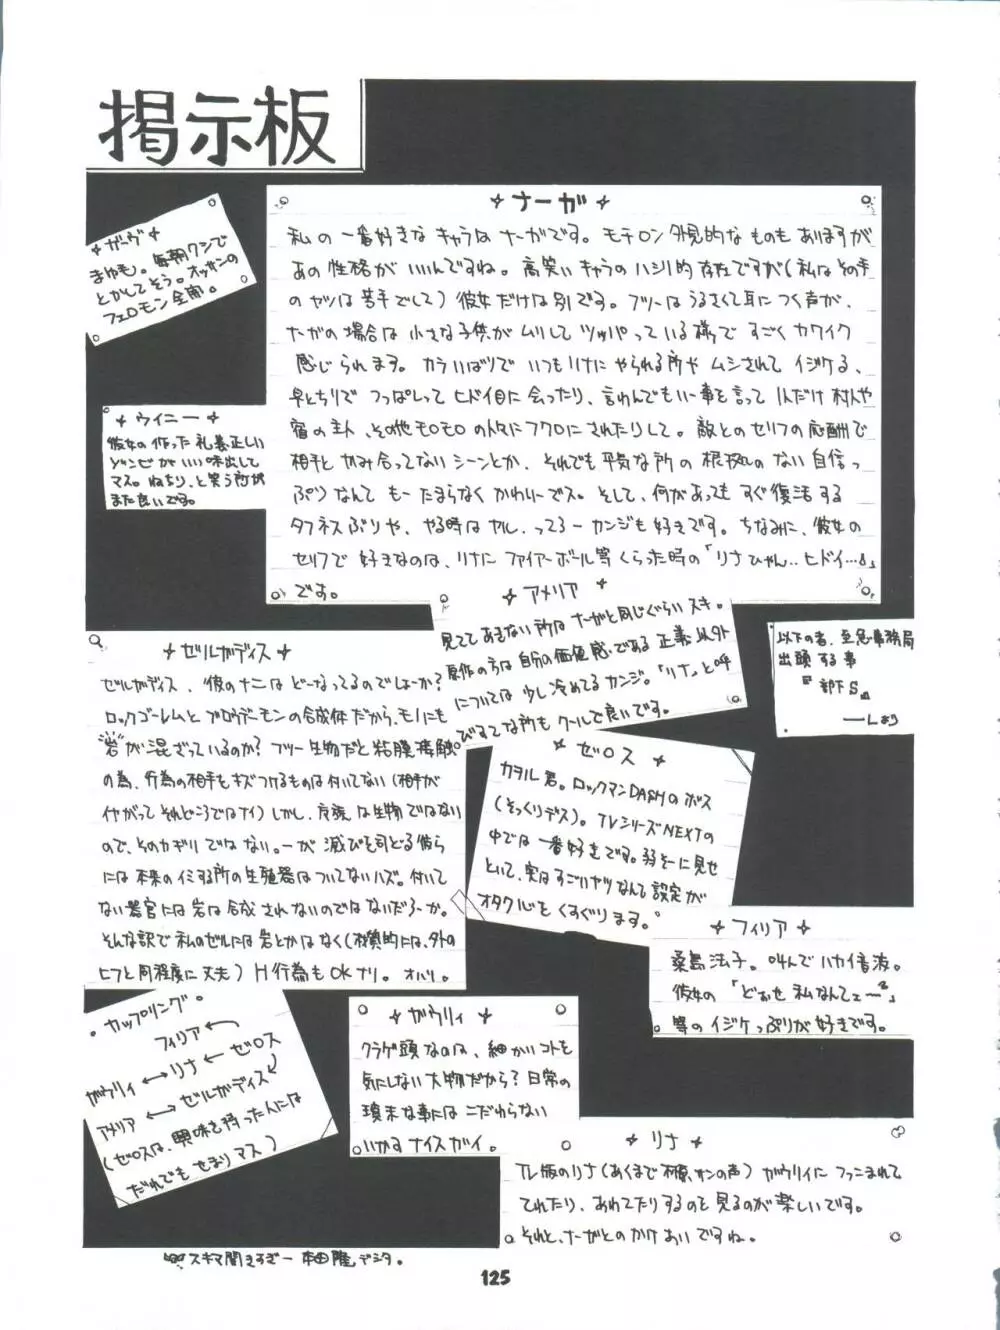 掲示板
✦ ガーヴ ✦
まゆも。毎朝クシで
とかしてそう。オッサンの
フェロモン全開。
✦ ナーガ ✦
私の一番好きなキャラはナーガです。モチロン外見的なものもありますが
あの性格がいいんですね。高笑いキャラのハシリ的存在ですが(私はその手
のヤツは苦手でして)彼女だけは別です。フツーはうるさくて耳につく声が、
ナーガの場合は小さな子供がムリしてツッパっている様ですごくカワイク
感じられます。カラいばりでいつもリナにやられる所やムシされてイジケる、
早とちりでつっぱしってヒドイ目に会ったり、言わんでもいー事を言って1人だけ村人や
宿の主人、その他モロモロの人々にフクロにされたりして。敵とのセリフの応酬で
相手とかみ合ってないシーンとか、それでも平気な所の根拠のない自信っ
ぷりなんてもーたまらなくかわいーでス。そして、何があってもすぐ復活する
タフネスぶりや、やる時はヤル、ってるーカンジも好きです。ちなみに、彼女の
セリフで好きなのは、リナにファイアーボール等くらった時の「リナひゃん..ヒドイ…」
です。
✦ ウイニー ✦
彼女の作った礼義正しい
ゾンビがいい味出して
マス。ねちり、と笑う所が
また良いです。
✦ アメリア ✦
見ててあきない所はナーガと同じぐらいスキ。
原作の方は自分の価値感である正義以外
については少し冷めてるカンジ。「リナ」と呼
びすてな所もクールで良いです。
以下の者、至急事務局
出頭する事
『部下S』
──Lより
✦ ゼルガディス ✦
ゼルガディス、彼のナニはどーなってるのでしょーか?
ロックゴーレムとブロウデーモンの合成体だから、モノにも
岩が混ざっているのか?フツー生物だと粘膜接触
の為、行為の相手をキズつけるものは付いてない(相手が
イヤがってそれどころではナイ)しかし、魔族は生物ではない
ので、そのカギリではない。ーが滅びを司どる彼ら
には本来のイミする所の生殖器はついてないハズ。付いて
ない器官には岩は合成されないのではないだろーか。
そんな訳で私のゼルには岩とかはなく(材質的には、外の
ヒフと同程度に丈夫)H行為もOKナリ。オハリ。
✦ ゼロス ✦
カヲル君。ロックマンDASHのボス
(そっくりデス)。TVシリーズNEXTの
中では一番好きです。弱そーに見せ
といて、実はすごいヤツなんて設定が
オタク心をくすぐります。
✦ フィリア ✦
桑島法子。叫んでハカイ音波。
彼女の「どおせ私なんてェー」
等のイジケっぷりが好きです。
・カップリング。
フィリア
ガウリィ ↔ リナ ← ゼロス
アメリア ↔ ゼルガディス
(ゼロスは、興味を持った人には
だれでもせまりマス)
✦ ガウリィ ✦
クラゲ頭なのは、細かいコトを
気にしない大物だから?日常の
瑣末な事にはこだわらない
いかすナイスガイ。
✦ リナ ✦
TV版のリナ(あくまで林原サンの声)ガウリィにつっこまれて
てれたり、あわてたりするのを見るのが楽しいです。
それと、ナーガとのかけあいですね。
スキマ開きすぎー本田隆デシタ。
125